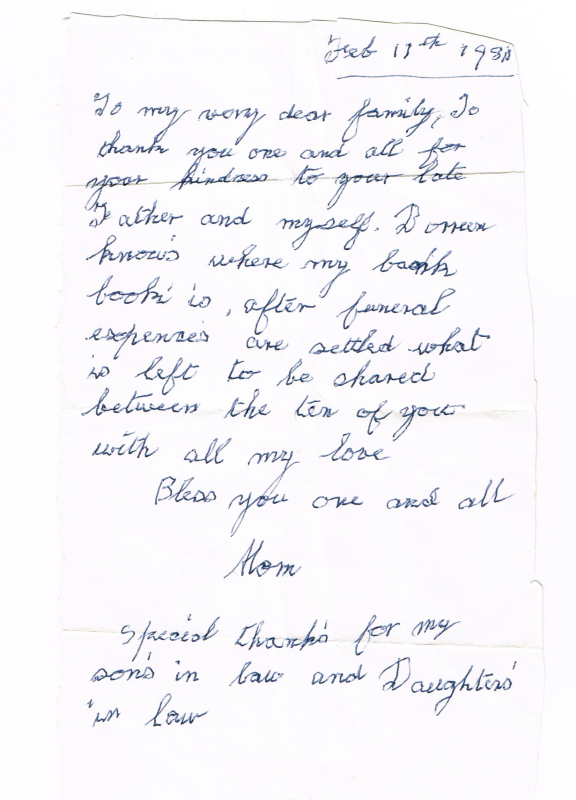 Feb 11th
To my very dear family, To
thank you one and all for
your kindness to your late
Father and myself. Doreen
knows where my bank
book is, after funeral
expenses are settled what
is left to be shared
between the ten of you
with all my love
Bless you one and all
Mom
Special thanks for my
son's in law and Daughters'
in law